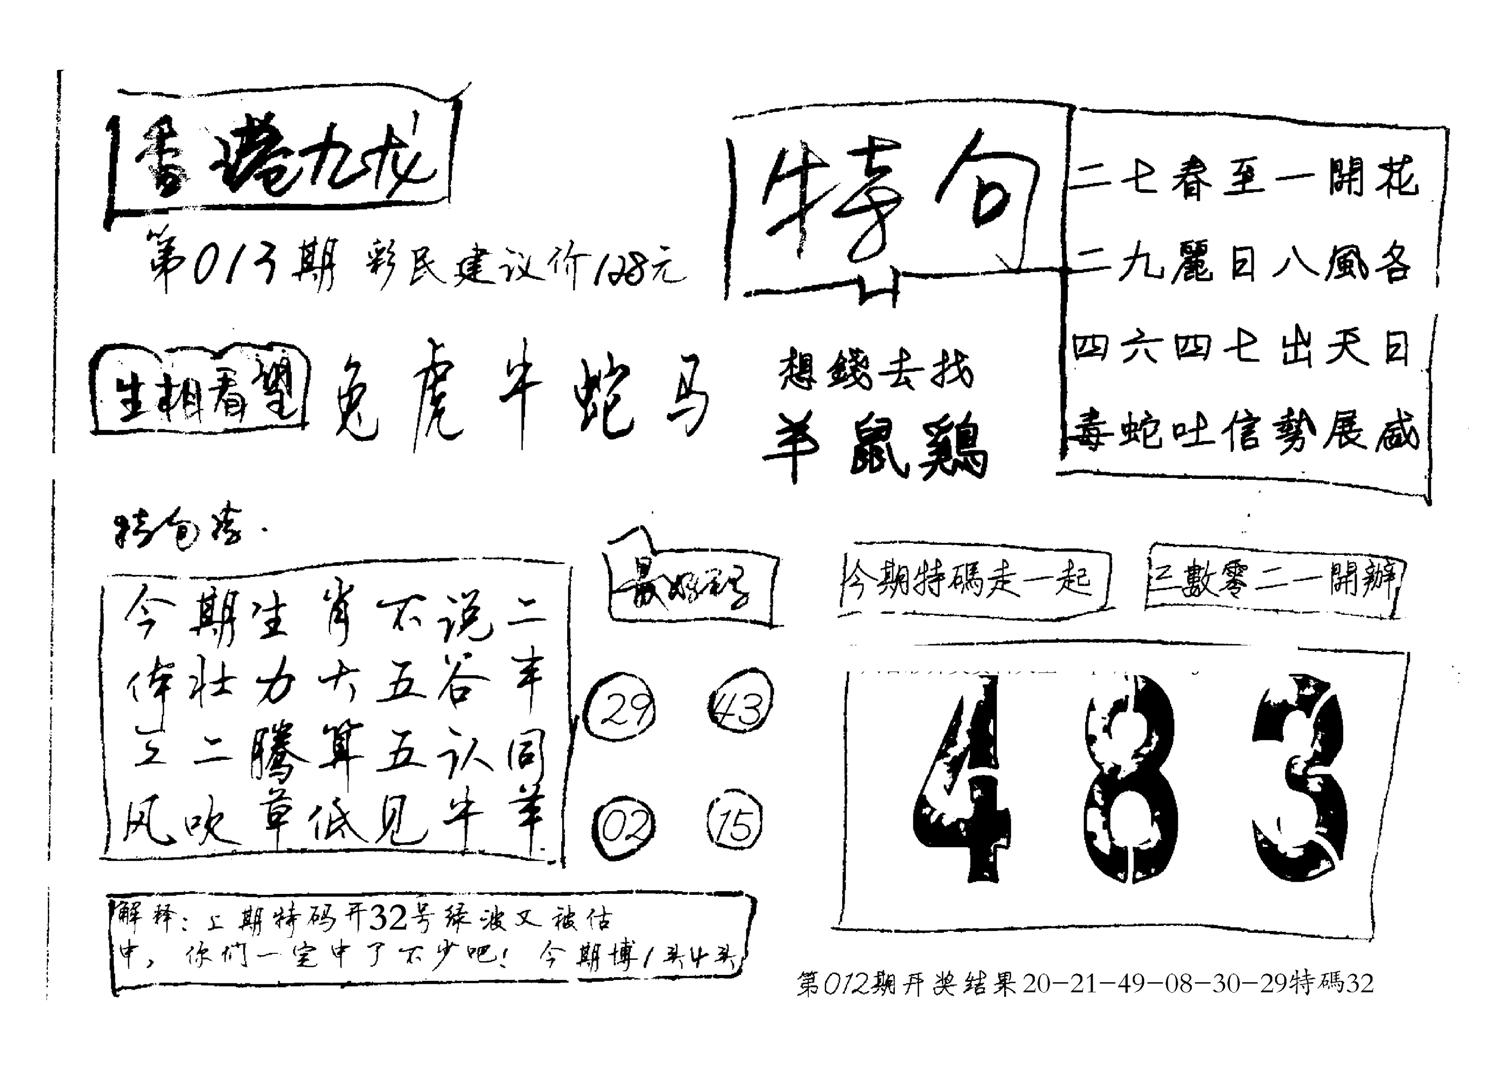 香港九龙
第013期 彩民建议价128元
特句
二七春至一開花
二九麗日八風各
四六四七出天日
毒蛇吐信勢展威
生相看望
兔虎牛蛇马
想錢去找
羊鼠鷄
今期生肖不说二
体壮力大五谷丰
三二腾算五认同
风吹草低见牛羊
最好码
29 43
02 15
今期特碼走一起
三數零二一開辦
483
解释：上期特码开32号绿波又被估
中，你们一定中了不少吧！今期博1头4头
第012期开奖结果20-21-49-08-30-29特碼32